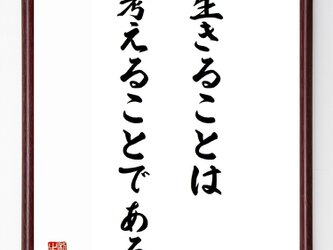 生きることは
考えることである